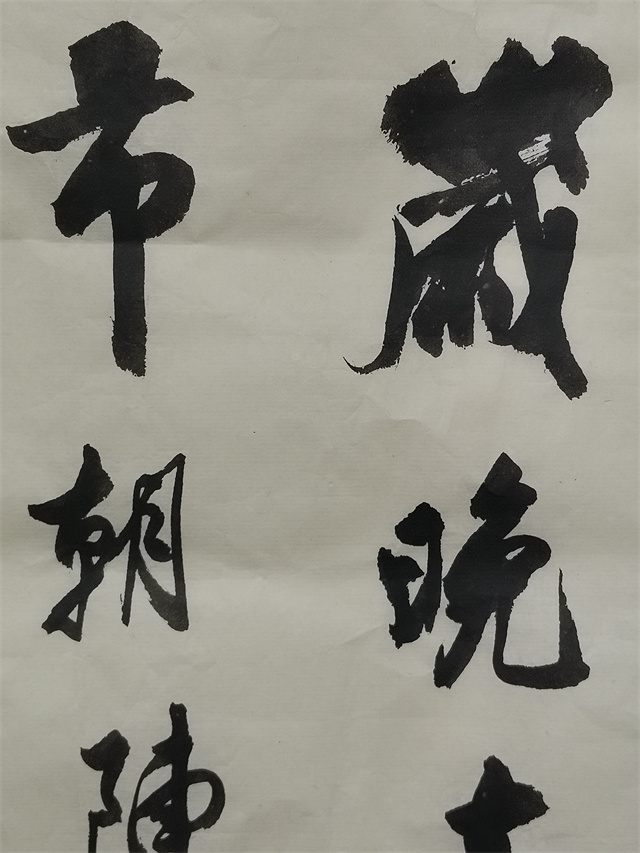 歲晚
市朝陳